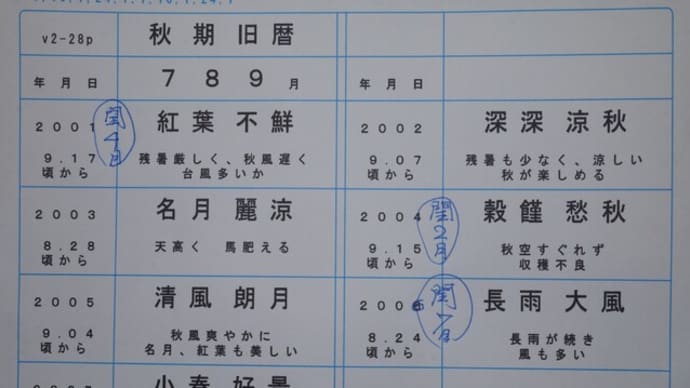 v2-28p 秋期旧暦
年月日 789月 年月日
2001 閏4月 紅葉不鮮
9.17頃から
残暑厳しく、秋風遅く
台風多いか
2002 深深涼秋
9.07頃から
残暑も少なく、涼しい
秋が楽しめる
2003 名月麗涼
8.28頃から
天高く 馬肥える
2004 閏2月 穀饉愁秋
9.15頃から
秋空すぐれず
収穫不良
2005 清風朗月
9.04頃から
秋風爽やかに
名月、紅葉も美しい
2006 閏7月 長雨大風
8.24頃から
長雨が続き
風も多い